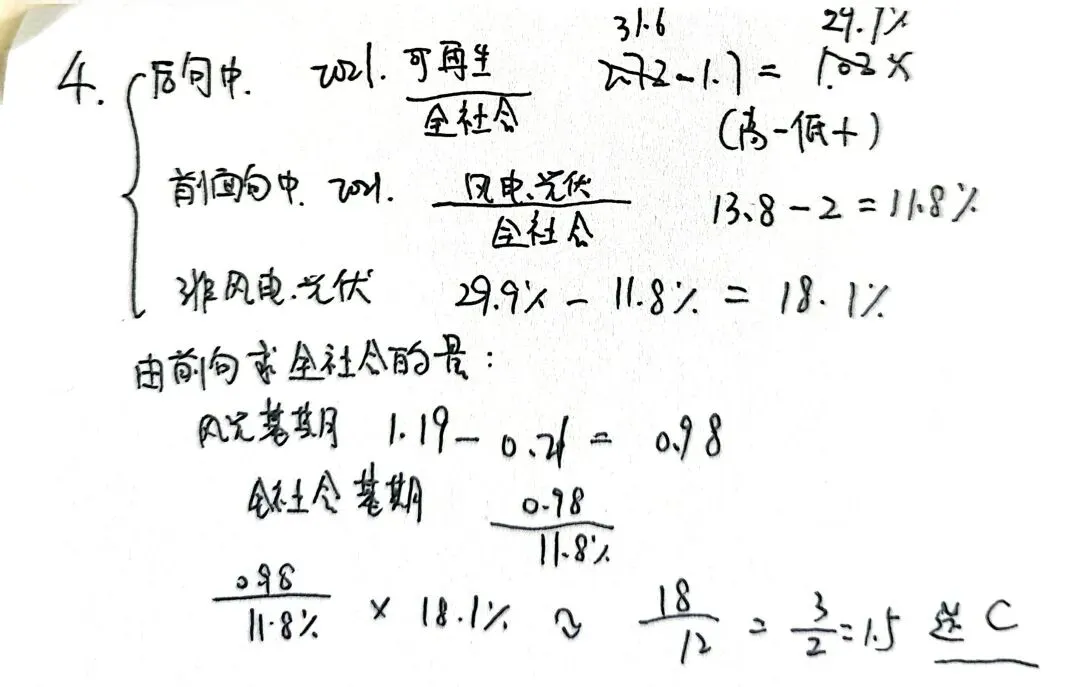 4. 后句中. 2021. 可再生/全社会 31.6 2.72-1.7 = 29.9% 1.02%
(高-低+)
前面句中. 2021. 风电.光伏/全社会 13.8-2=11.8%
非风电.光伏 29.9% - 11.8% = 18.1%
由前句求全社会的量:
风光基期 1.19-0.21 = 0.98
全社会基期 0.98/11.8%
0.98/11.8% × 18.1% ≈ 18/12 = 3/2=1.5 选 C